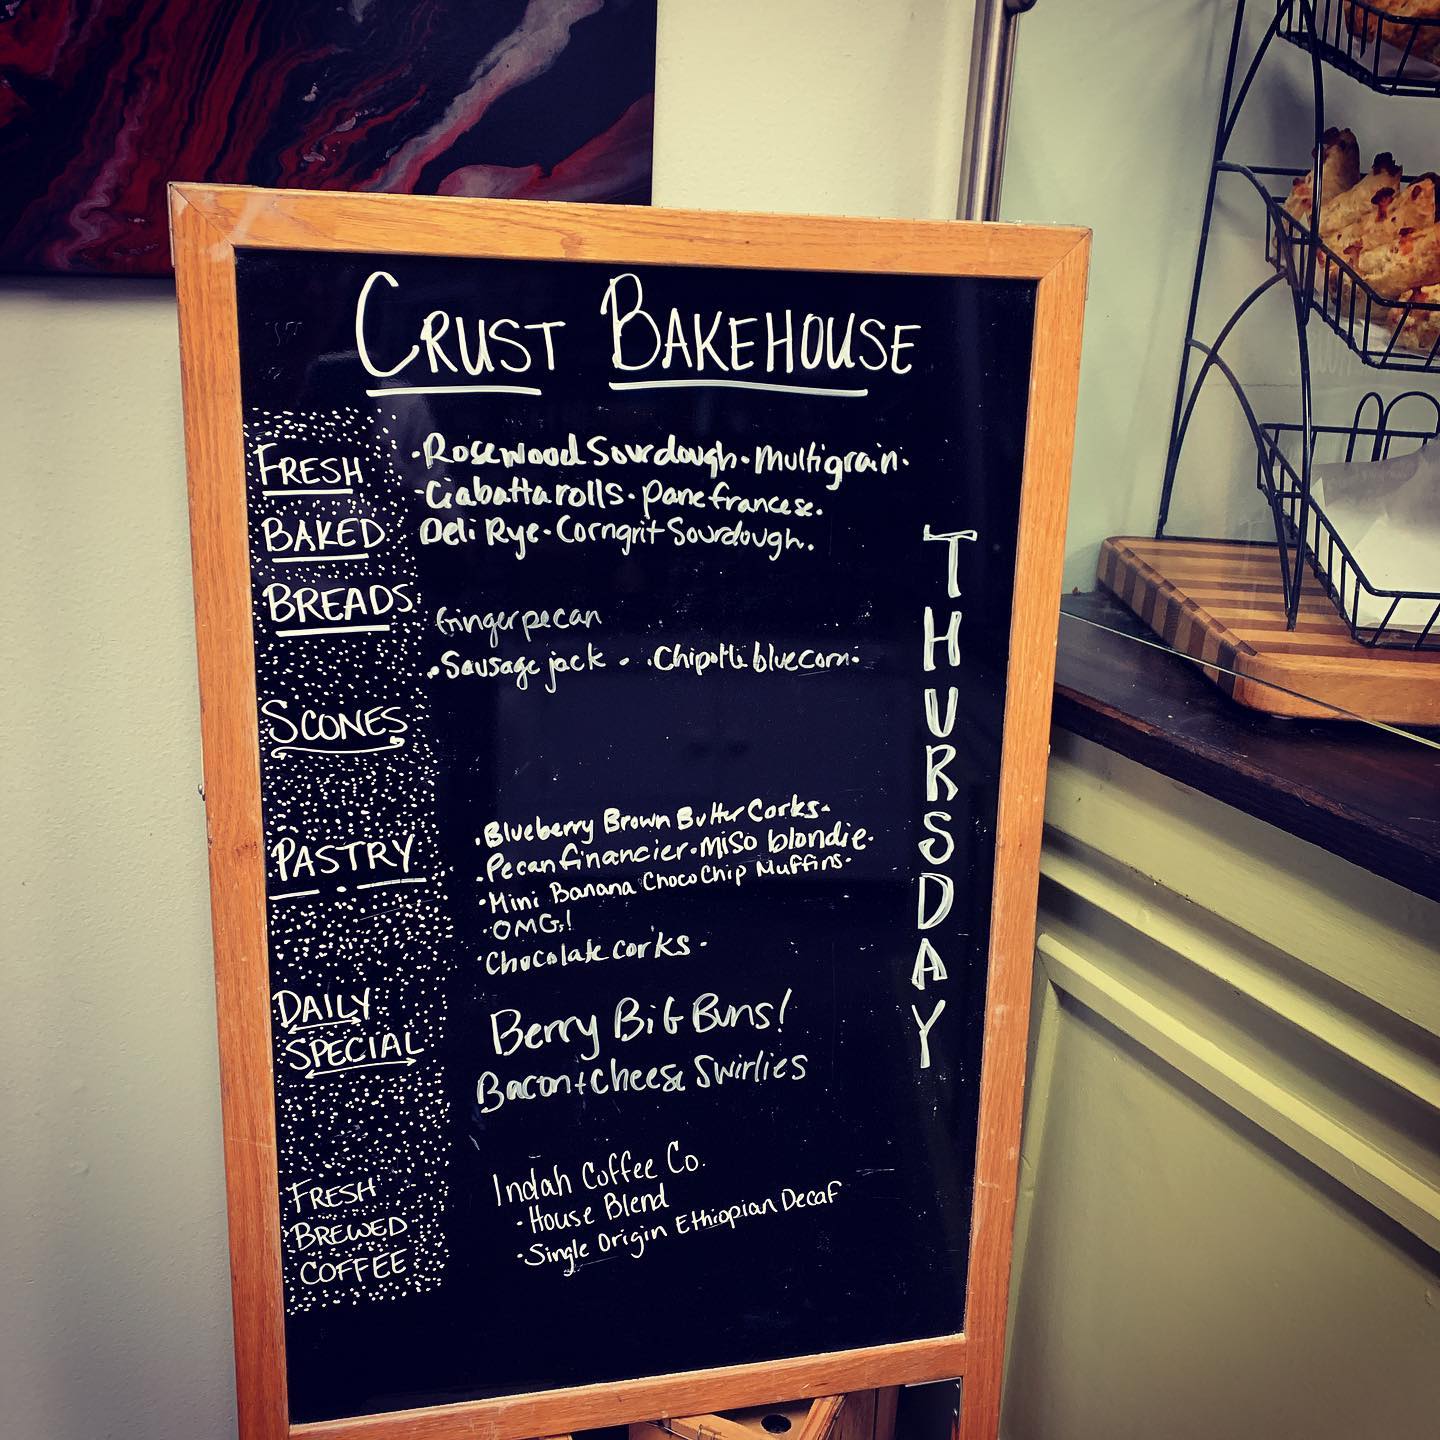 CRUST BAKEHOUSE
FRESH
BAKED
BREADS
·Rosewood Sourdough·Multigrain·
·Ciabatta rolls·pane francese.
Deli Rye·Corngrit Sourdough.
Ginger pecan
·Sausage jack · ·Chipotle blue corn·
SCONES
PASTRY
·Blueberry Brown Butter Corks·
·Pecan financier·Miso blondie·
·Mini Banana Choco Chip Muffins·
·OMG!
·Chocolate corks·
DAILY
SPECIAL
Berry Buns!
Bacon+cheese Swirlies
FRESH
BREWED
COFFEE
Indah Coffee Co.
·House Blend
·Single Origin Ethiopian Decaf
THURSDAY